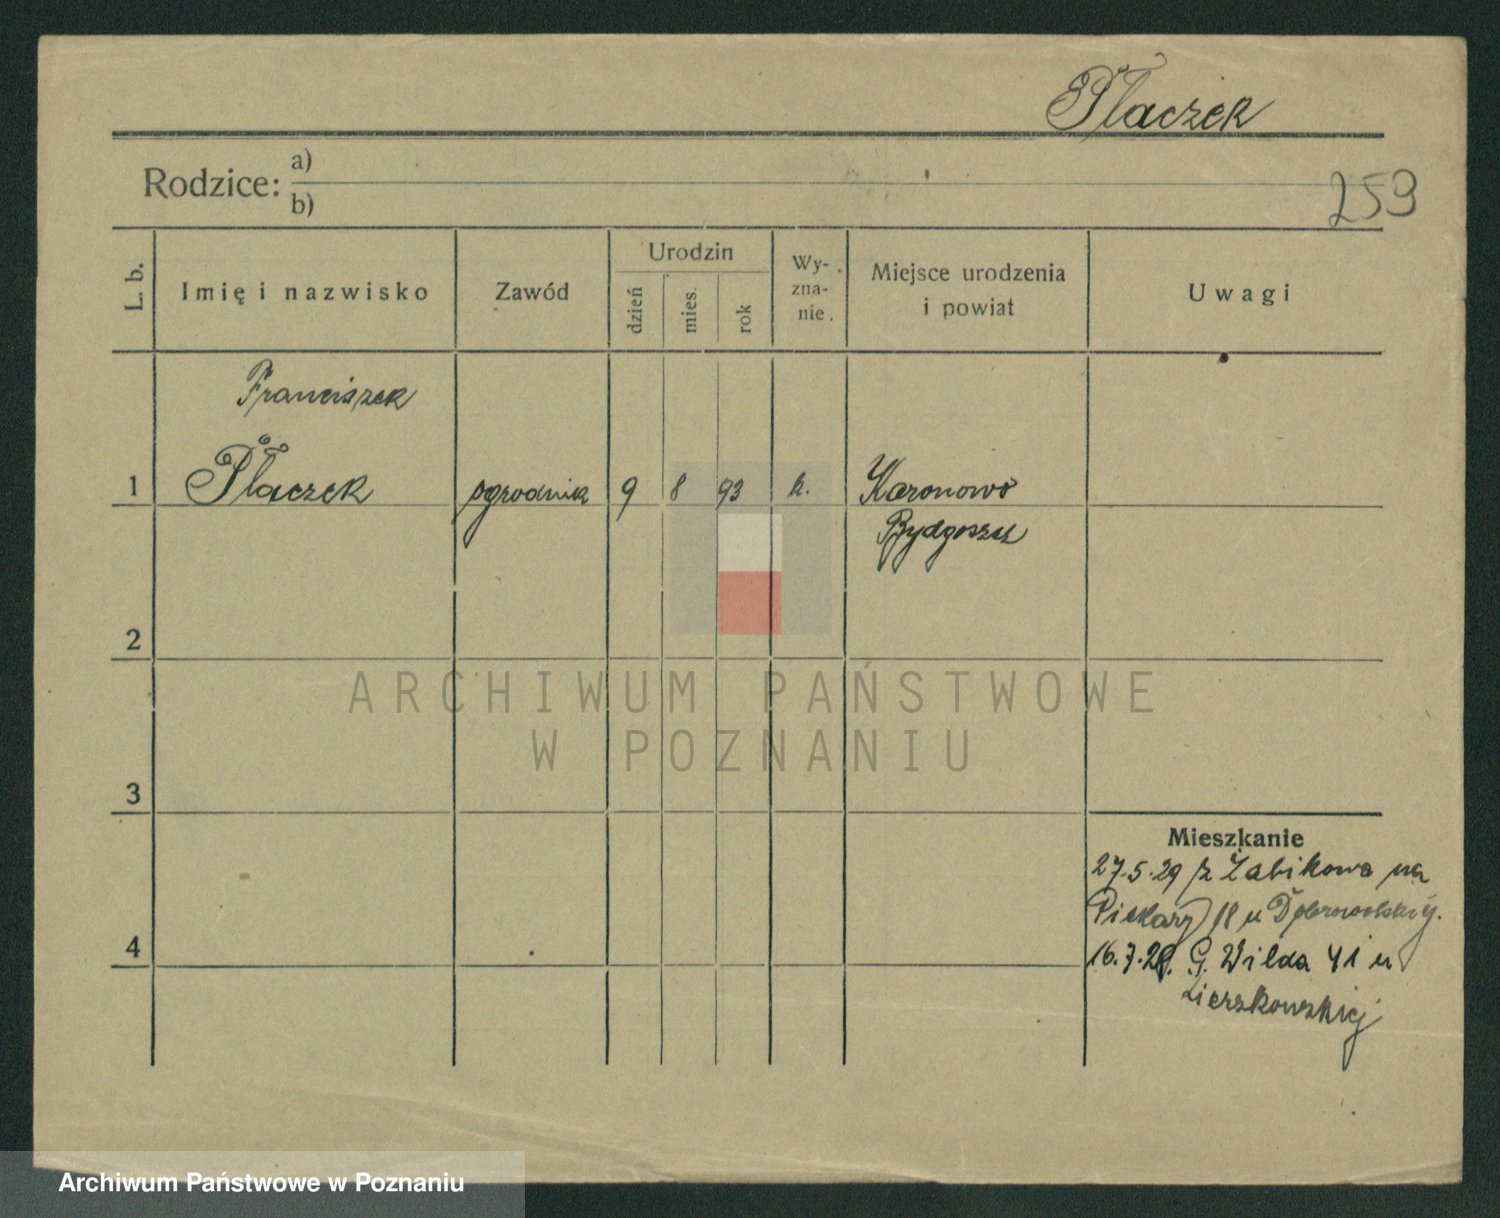 Płaczek
Rodzice: a)
b)
259
L. b.
Imię i nazwisko
Zawód
Urodzin
dzień
mies.
rok
Wy-
zna-
nie.
Miejsce urodzenia
i powiat
Uwagi
Franciszek
1 Płaczek ogrodnik 9 8 93 k. Koronowo
Bydgoszcz
2
ARCHIWUM PAŃSTWOWE
W POZNANIU
3
Mieszkanie
27.5.29 z Żabikowa na
Piekary 18 u Dobrowolskiej.
4
16.7.29. G. Wilda 41 u
Archiwum Państwowe w Poznaniu